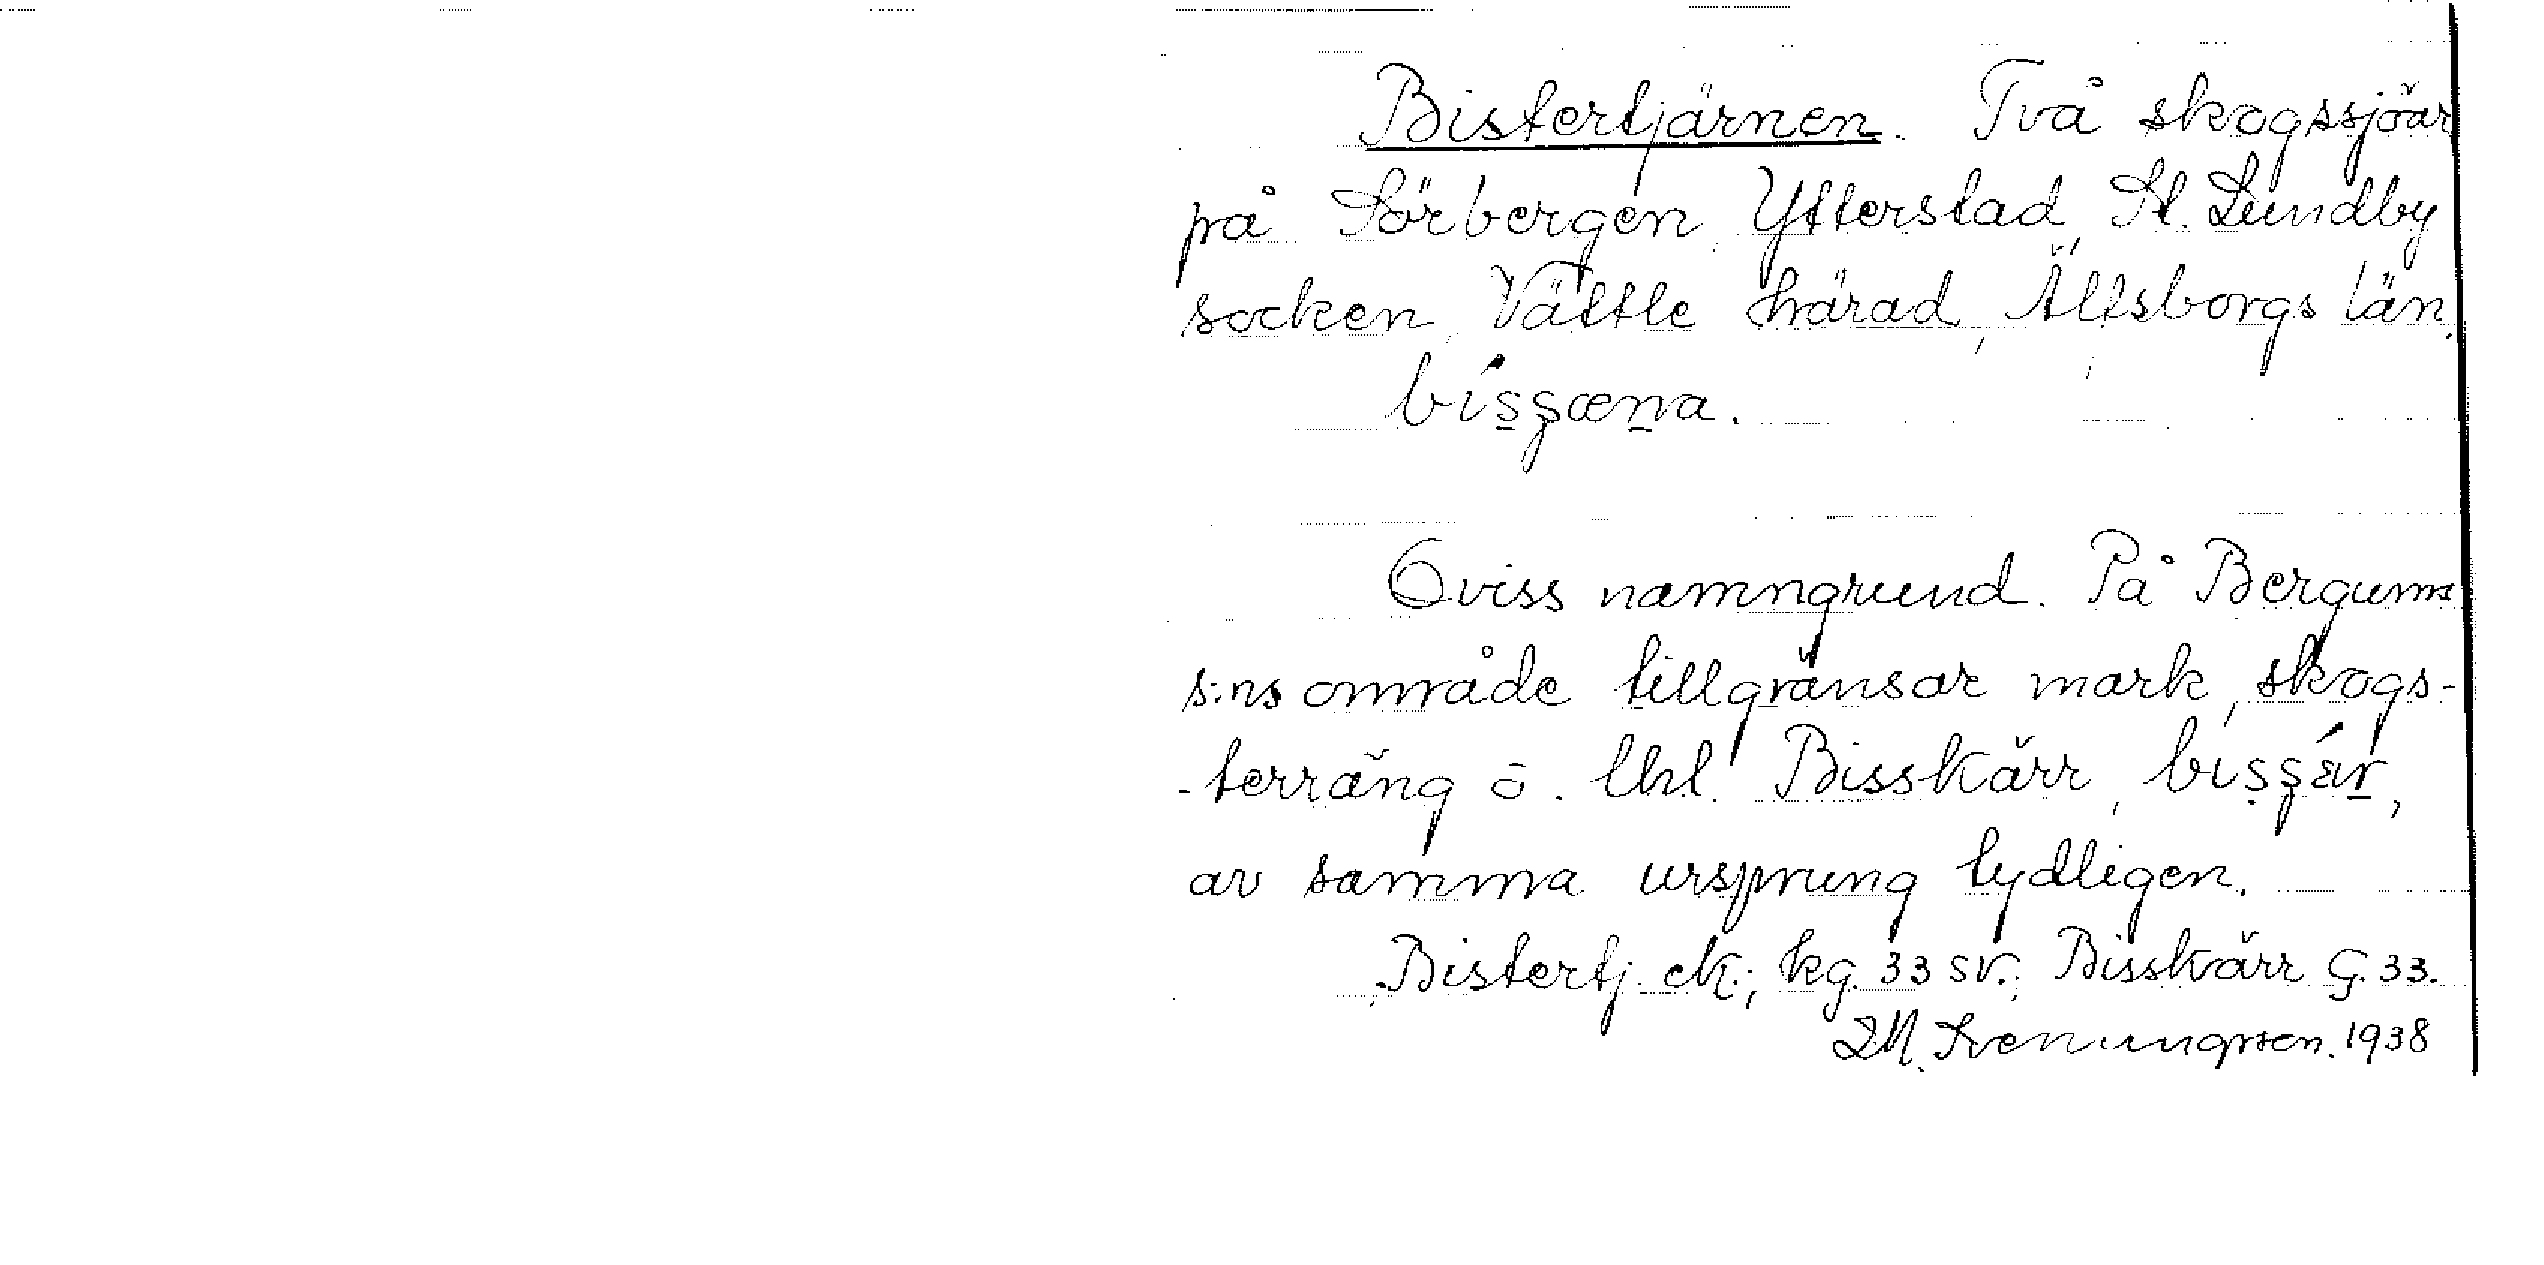 Bistertjärnen. Två skogssjöar
på Sörbergen, Ytterstad, St. Lundby
socken, Vättle härad, Älfsborgs län.
Oviss namngrund. På Bergums
s:ns område tillgränsar mark, skogs-
-terräng ö. lhl. Bisskärr,
av samma ursprung tydligen.
Bistertj. ek.; kg. 33 sv.; Bisskärr G. 33.
Svenungsson. 1938